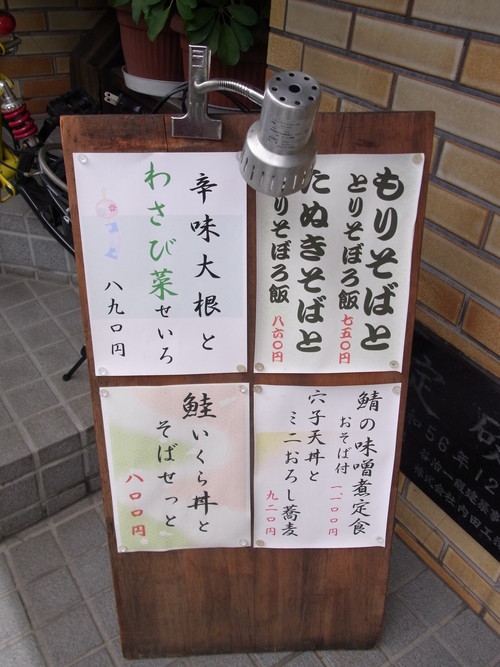 もりそばと
とりそぼろ飯
七五〇円
たぬきそばと
りそぼろ飯
八六〇円
辛味大根と
わさび菜せいろ
八九〇円
鯖の味噌煮定食
おそば付
一、一〇〇円
穴子天丼と
ミニおろし蕎麦
九二〇円
鮭いくら丼と
そばせっと
八〇〇円
定 礎
和56年12